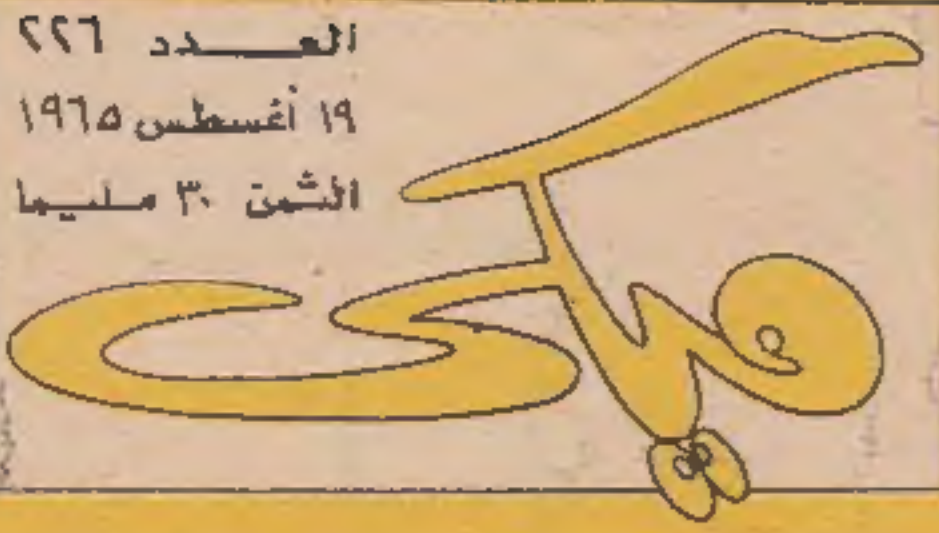 العدد ٢٢٦
١٩ أغسطس ١٩٦٥
الثمن ٣٠ مليما
ميكى